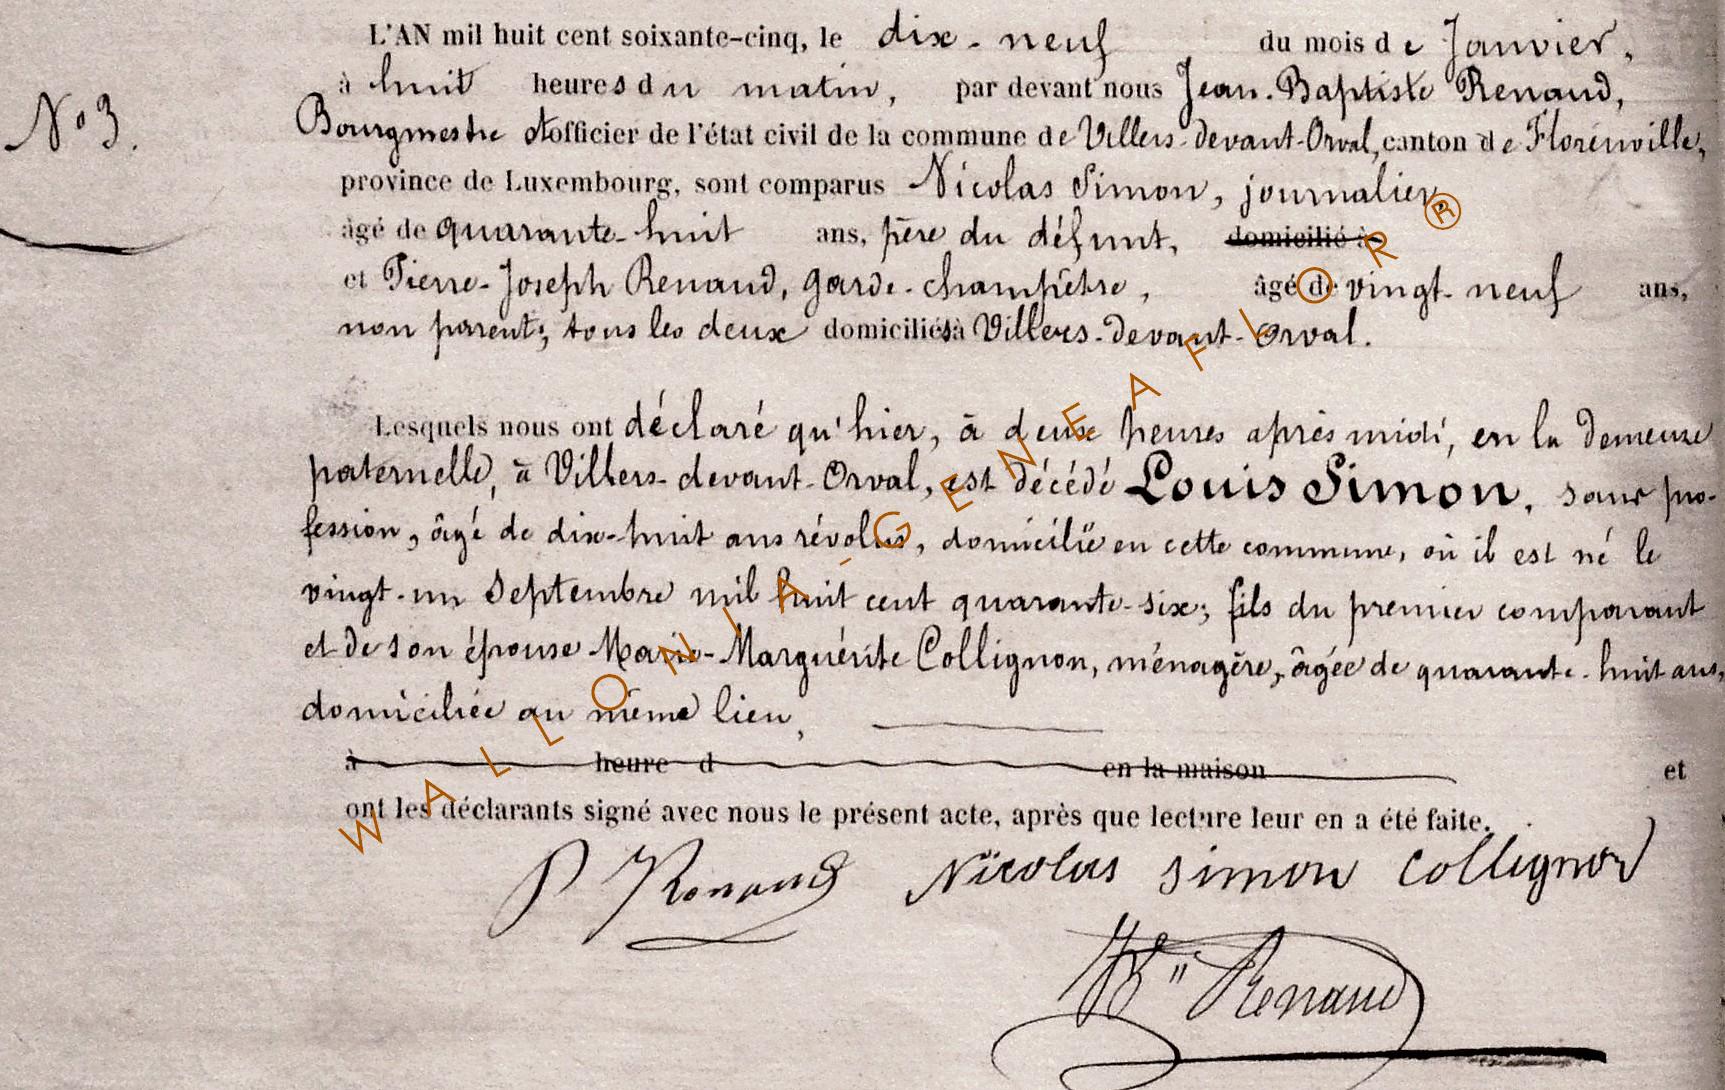 L'AN mil huit cent soixante-cinq, le dix-neuf du mois de Janvier,
à huit heures du matin, par devant nous Jean-Baptiste Renaud,
N° 3.
Bourgmestre et officier de l'état civil de la commune de Villers-devant-Orval, canton de Florenville,
province de Luxembourg, sont comparus Nicolas Simon, journalier,
âgé de quarante-huit ans, père du défunt, domicilié à
et Pierre-Joseph Renaud, garde-champêtre, âgé de vingt-neuf ans,
non parent; tous les deux domiciliés à Villers-devant-Orval.
Lesquels nous ont déclaré qu'hier, à deux heures après midi, en la demeure
paternelle, à Villers-devant-Orval, est décédé Louis Simon, sans pro-
fession, âgé de dix-huit ans révolus, domicilié en cette commune, où il est né le
vingt-un Septembre mil huit cent quarante-six; fils du premier comparant
et de son épouse Marie-Marguérite Collignon, ménagère, âgée de quarante-huit ans,
domiciliée au même lieu,
à heure d en la maison et
ont les déclarants signé avec nous le présent acte, après que lecture leur en a été faite.
P Renaud Nicolas Simon Collignon
Renaud
WALLONIA-GENEAFLOR®